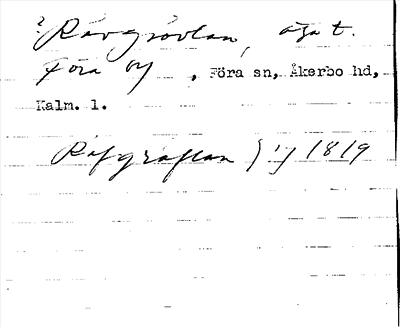 ? Rävgrövlan, äga t.
Föra by, Föra sn, Åkerbo hd,
Kalm. l.
Räfgräflan 1819